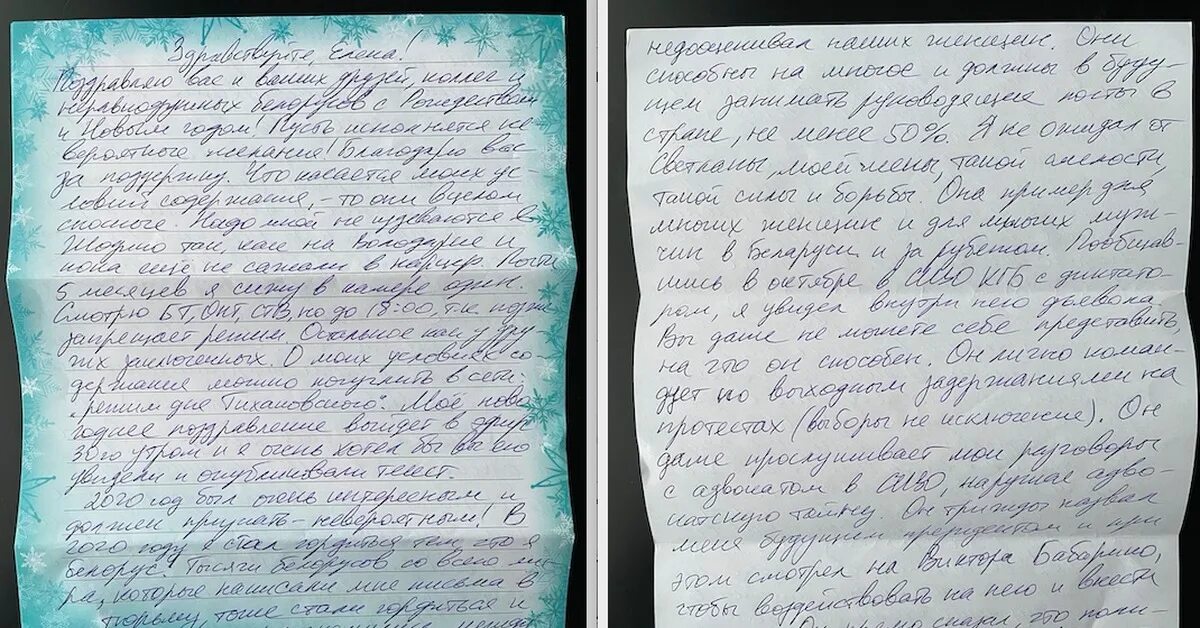 Здравствуйте, Елена!
Поздравляю вас и ваших друзей, коллег и
неравнодушных белорусов с Рождеством
и Новым годом! Пусть исполнятся не-
вероятные желания! Благодарю вас
за поддержку. Что касается моих ус-
ловий содержания, - то они в целом
сносные. Надо мной не издеваются в
Жодино так, как на Володарке и
пока ещё не сажали в карцер. Почти
5 месяцев я сижу в камере один.
Смотрю БТ, ОНТ, СТВ, но до 18:00, т.к. позже
запрещает режим. Остальное как у дру-
гих заключенных. О моих условиях со-
держания можно погуглить в сети:
"режим дня Тихановского". Моё ново-
годнее поздравление выйдет в эфир
30го утром и я очень хотел бы вы его
увидели и опубликовали текст.
2020 год был очень интересным и
должен признать - невероятным! В
2020 году я стал гордиться тем, что я
белорус. Тысячи белорусов со всего ми-
ра, которые написали мне письма в
тюрьму, тоже стали гордиться и
недооценивал наших женщин. Они
способны на многое и должны в буду-
щем занимать руководящие посты в
стране, не менее 50%. Я не ожидал от
Светланы, моей жены, такой смелости,
такой силы и борьбы. Она пример для
многих женщин и для многих муж-
чин в Беларуси и за рубежом. Пообщав-
шись в октябре в СИЗО КГБ с диктато-
ром, я увидел внутри него дьявола.
Вы даже не можете себе представить,
на что он способен. Он лично коман-
дует по выходным задержаниями на
протестах (выборы не исключение). Он
даже прослушивает мои разговоры
с адвокатом в СИЗО, наружая адво-
катскую тайну. Он трижды назвал
меня будущем президентом и при
этом смотрел на Виктора Бабарико,
чтобы воздействовать на него и внести
сказал, что